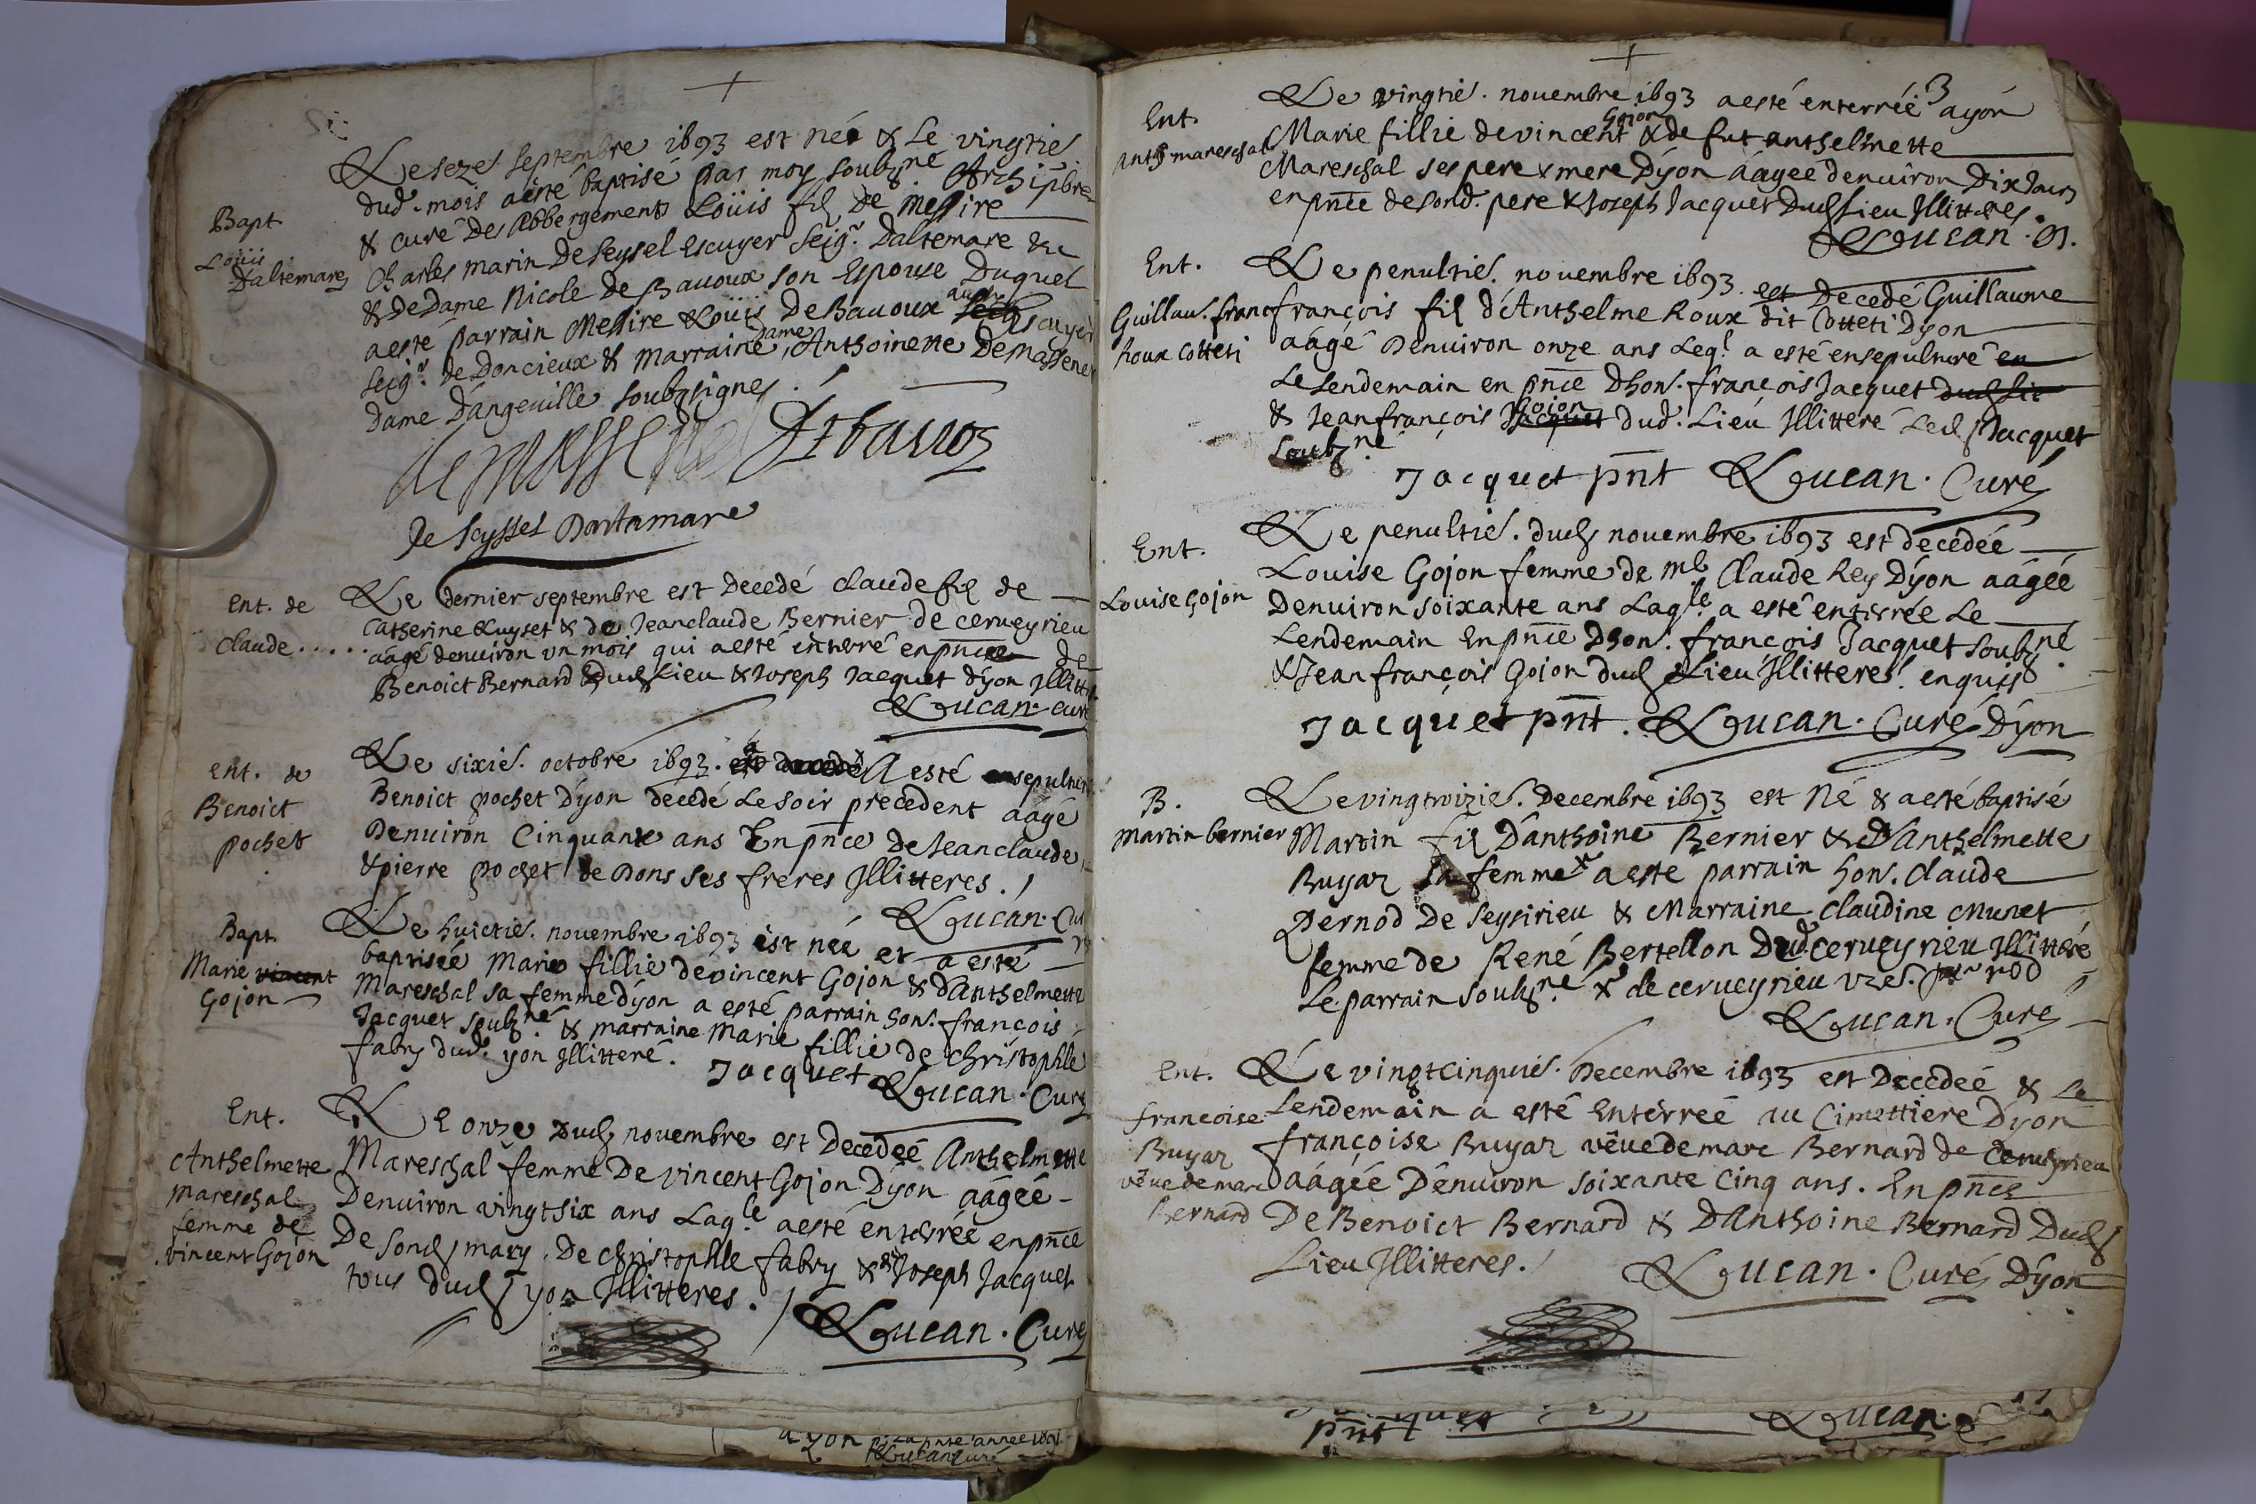 Bapt.
Loüis
Daltemare
Le seze septembre 1693 est Né & Le vingties
dud. mois a esté baptisé par moy soubz.né Archipbre
& curé Des Abbergements Loüis fil De Messire
Charles marin De Seyssel escuyer Seigr. Daltemare &c
& de Dame Nicole de Bavoux son Espouse Duquel
a esté parrain Messire Loüis De Bavoux escuyer
seigr. de Doncieux & marraine dame Anthoinette De Massene
dame d'angeville soubzsignes.
de Massene Debavoz
De Seyssel Dartamare
Ent. de
Claude.....
Le dernier septembre est Decedé Claude fil de
Catherine Luyset & de Jeanclaude Bernier de cerveyrieu
aágé denviron un mois qui a esté interré en pnce de
Benoict Bernard dud Lieu & Joseph Jacquet d'yon Illitt
Lucan. curé
Ent. de
Benoict
pochet
Le sixie. octobre 1693. est decedé A esté ensepulture
Benoict pochet D'yon décedé Le soir precedent aágé
Denviron Cinquante ans En pnce De Jeanclaude
& pierre pochet de Dons ses freres Illitteres.
Lucan. Cu
Bapt.
Marie vincent
Gojon
Le huictie. novembre 1693 est née et a esté
baptisée Marie fillie de vincent Gojon & d'Anthelmette
Mareschal sa femme d'yon a esté parrain hon. françois
Jacquet soubz.né & marraine Marie fillie de Christophle
fabry dud. yon Illitteré.
Jacquet Lucan. Curé
Ent.
Anthelmette
mareschal
femme de
vincent Gojon
Le onze dud novembre est Decedeé Anthelmette
Mareschal femme De vincent Gojon D'yon aágéé
Denviron vingt six ans Laq.le a esté enterrée en pnce
De sond mary, De Christophle fabry & de Joseph Jacquet
tous dud yon Illitteres.
Lucan. Curé
a yon
année
Lucan curé
3
Ent.
Anth mareschal
Le vingtie. novembre 1693 a esté enterréé a yon
Gojon
Marie fillie de vincent & de fut anthelmette
Mareschal ses pere & mere D'yon aágée denviron Dix Jours
en pnce de sond. pere & Joseph Jacquet Dud Lieu Illitteres.
Lucan.
Ent.
Guillau. franc
Roux Cotteti
Le penultie. novembre 1693. est Decedé Guillaume
françois fil d'Anthelme Roux dit Cotteti D'yon
aágé Denviron onze ans Leql. a esté ensepulturé en
Le Lendemain en pnce D'hon. françois Jacquet dud Lie
Gojon
& Jean françois Jacquet dud. Lieu Illitteré Led Jacquet
soubz.né
Jacquet pnt Lucan. Curé
Ent.
Louise Gojon
Le penultie. dud novembre 1693 est decedée
Louise Gojon femme de Me Claude Rey D'yon aágéé
Denviron soixante ans Laq.le a esté enterrée Le
Lendemain En pnce D'hon. françois Jacquet soubz.né
& Jean françois Gojon dud Lieu Illitteres. enquis
Jacquet pnt. Lucan. Curé D'yon
B.
Martin bernier
Le vingtroizie. Decembre 1693 est Né & a esté baptisé
Martin fil D'anthoine Bernier & D'Anthelmette
Buyaz sa femme a este parrain hon. Claude
Pernod De Seysirieu & Marraine Claudine Munet
femme de René Bertellon Dud. cerveyrieu Illitteré
Le parrain soubz.né & de cerveyrieu
Lucan. Curé
Ent.
francoise
Buyaz
vêve de marc
Bernard
Le vingt cinquie. Decembre 1693 est Decedeé & Le
Lendemain a esté Enterreé au Cimettiere D'yon
françoise Buyaz vêve de marc Bernard de Cerveyrieu
aágéé D'environ soixante Cinq ans. En pnce
De Benoict Bernard & D'Anthoine Bernard Dud
Lieu Illitteres.
Lucan. Curé D'yon
pnt
Lucan.